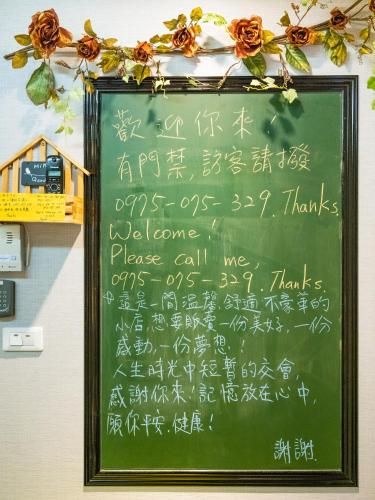 歡迎你來！
有門禁，訪客請撥
0975-075-329. Thanks.
Welcome!
Please call me,
0975-075-329. Thanks.
這是一間溫馨.舒適 不豪華的
小店.想要販賣一份美好.一份
感動.一份夢想.！
人生時光中短暫的交會.
感謝你來！記憶放在心中.
願你平安.健康！
謝謝